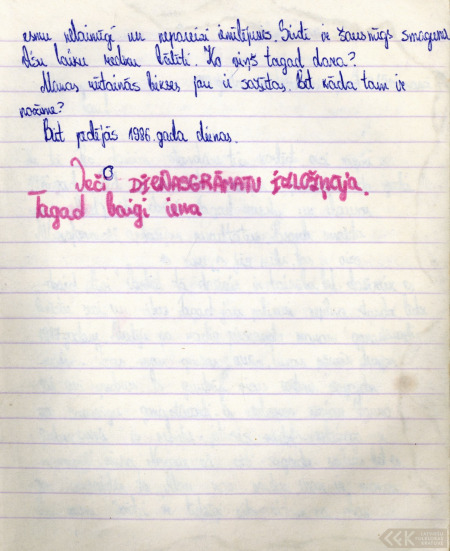 esmu nelaimīgi un nepareizi iemīlējusies. Sirdī ir šausmīgs smagums
Visu laiku redzu Valdi. Ko viņš tagad dara?
Manas rūtainās bikses jau ir sašūtas. Bet kāda tam ir
nozīme?
Bet pēdējās 1986. gada dienas.
Veči DIENASGRĀMATU izlošņāja.
Tagad baigi iena